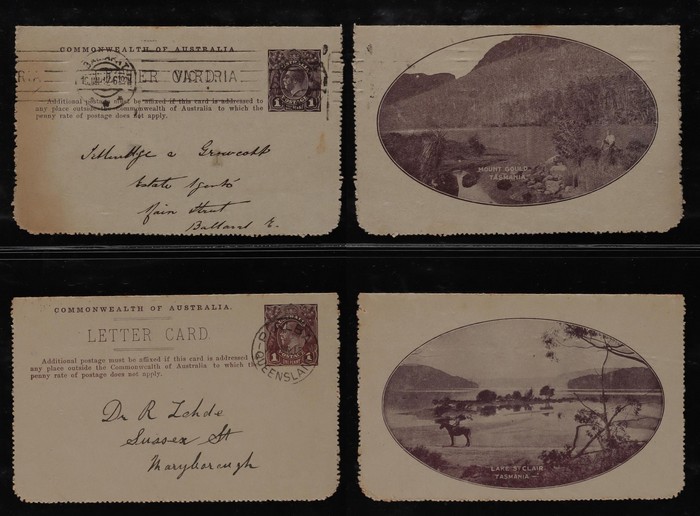 COMMONWEALTH OF AUSTRALIA
LETTER CARD
VICTORIA
Additional postage must be affixed if this card is addressed to
any place outside the Commonwealth of Australia to which the
penny rate of postage does not apply.
1 1
Estate Agents
Main Street
Ballarat E.
MOUNT GOULD,
TASMANIA
COMMONWEALTH OF AUSTRALIA.
LETTER CARD.
Additional postage must be affixed if this card is addressed
any place outside the Commonwealth of Australia to which the
penny rate of postage does not apply.
1
QUEENSLAN
Dr R Zehde
Sussex St
Maryborough
LAKE ST CLAIR
TASMANIA